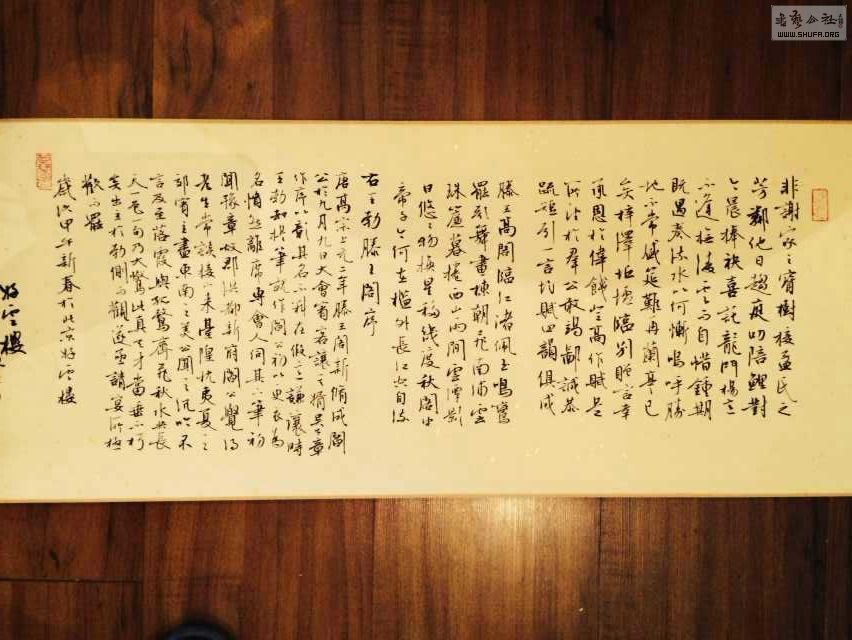 非謝家之寶樹接孟氏之
芳鄰他日趨庭叨陪鯉對
今晨捧袂喜託龍門楊意
不逢撫凌雲而自惜鍾期
既遇奏流水以何慚嗚呼勝
地不常盛筵難再蘭亭已
矣梓澤坵墟臨別贈言幸
承恩於偉餞登高作賦是
所望於群公敢竭鄙誠恭
疏短引一言均賦四韻俱成
滕王高閣臨江渚佩玉鳴鸞
罷歌舞畫棟朝飛南浦雲
珠簾暮捲西山雨閒雲潭影
日悠悠物換星移幾度秋閣中
帝子今何在檻外長江空自流
右王勃滕王閣序
唐高宗上元二年滕王閣新脩成閻
公於九月九日大會賓客讓之壻吳子章
作序以彰其名不料在假意謙讓時
王勃卻提筆就作閻公初以更衣為
名憤然離席專會人伺其下筆初
聞豫章故郡洪都新府閻公覺得
老生常談接下來臺隍枕夷夏之
郊賓主盡東南之美公聞之沉吟不
言及至落霞與孤鶩齊飛秋水共長
天一色一句乃大驚此真天才當垂不朽
矣出立於勃側而觀遂亟請宴所極
歡而罷
歲次甲午新春於北京好雲樓
好雲樓
書藝公社
WWW.SHUFA.ORG